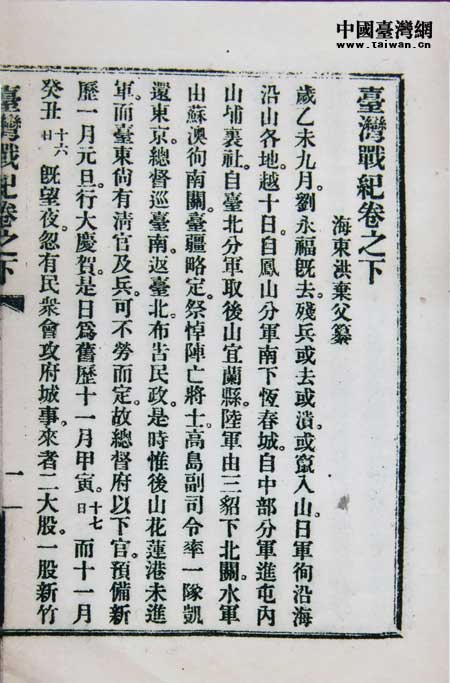 中國臺灣網
www.taiwan.cn
臺灣戰紀卷之下
海東洪棄父纂
歲乙未九月。劉永福既去。殘兵或去或潰。或竄入山。日軍徇沿海
沿山各地。越十日。自鳳山分軍南下恆春城。自中部分軍進屯內
山埔裏社。自臺北分軍取後山宜蘭縣。陸軍由三貂下北關。水軍
由蘇澳徇南關。臺疆略定。祭悼陣亡將士。高島副司令率一隊凱
還東京。總督巡臺南。返臺北。布告民政。是時惟後山花蓮港未進
軍。而臺東尚有清官及兵。可不勞而定。故總督府以下官。預備新
歷一月元旦。行大慶賀。是日爲舊歷十一月甲寅。十七日而十一月
癸丑十六日既望夜。忽有民衆會攻府城事。來者二大股。一股新竹
臺灣戰紀卷之下
一